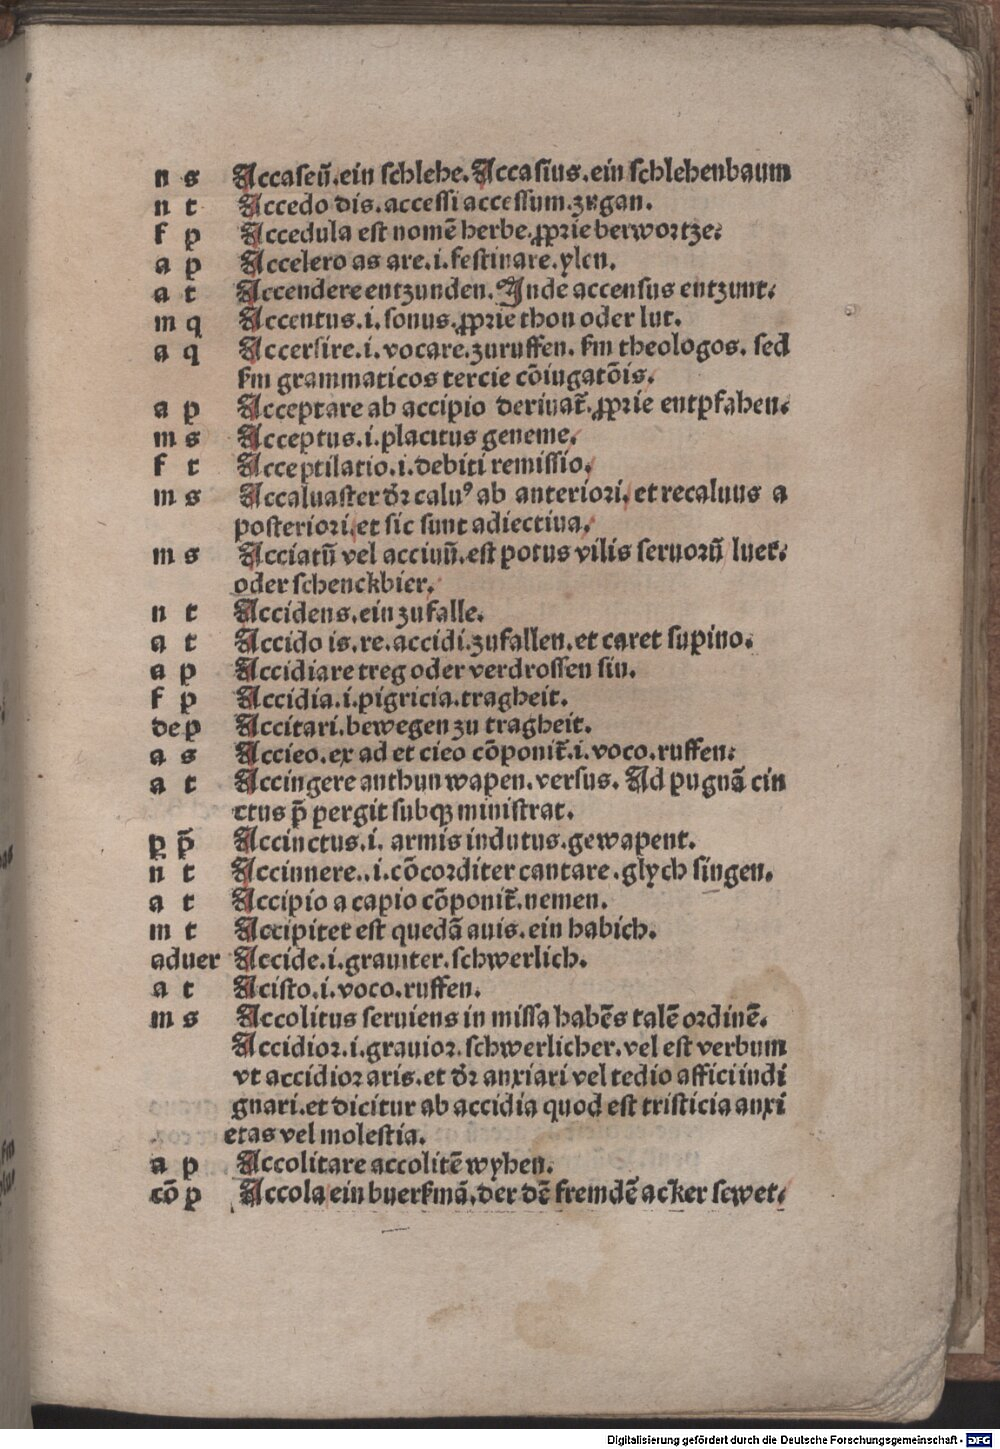 n s Accaseū.ein schlehe.Accasius.ein schlehenbaum
n t Accedo dis.accessi accessum.zugan.
f p Accedula est nomē herbe.ꝓprie berwortze.
a p Accelero as are.i.festinare.ylen.
a t Accendere entzunden.Inde accensus entzunt.
m q Accentus.i.sonus.ꝓprie thon oder lut.
a q Accersire.i.vocare.zuruffen. km theologos. sed
km grammaticos tercie cōiugatōis.
a p Acceptare ab accipio deriuat̄.ꝓprie entpfahen.
m s Acceptus.i.placitus geneme.
f t Acceptilatio.i.debiti remissio.
m s Accaluaster dr̄ caluꝰ ab anteriori.et recaluus a
posteriori.et sic sunt adiectiua.
m s Acciatū vel acciuū.est potus vilis seruorū luer.
oder schenckbier.
n t Accidens.ein zufalle.
a t Accido is.re.accidi.zufallen.et caret supino.
a p Accidiare treg oder verdrossen sin.
f p Accidia.i.pigricia.tragheit.
de p Accitari.bewegen zu tragheit.
a s Accieo.ex ad et cieo cōponit̄.i.voco.ruffen.
a t Accingere anthun wapen.versus. Ad pugnā cin
ctus p̄ pergit subqꝫ ministrat.
p p̄ Accinctus.i. armis indutus.gewapent.
n t Accinnere..i.cōcorditer cantare.glych singen.
a t Accipio a capio cōponit̄.nemen.
m t Accipitet est quedā auis.ein habich.
aduer Accide.i.grauiter.schwerlich.
a t Acisto.i.voco.ruffen.
m s Accolitus seruiens in missa habēs talē ordinē.
Accidior.i.grauior.schwerlicher.vel est verbum
vt accidior aris.et dr̄ anxiari vel tedio affici indi
gnari.et dicitur ab accidia quod est tristicia anxi
etas vel molestia.
a p Accolitare accolitē wyhen.
cō p Accola ein buerkmā.der dē fremdē acker sewet.
Digitalisierung gefördert durch die Deutsche Forschungsgemeinschaft - DFG